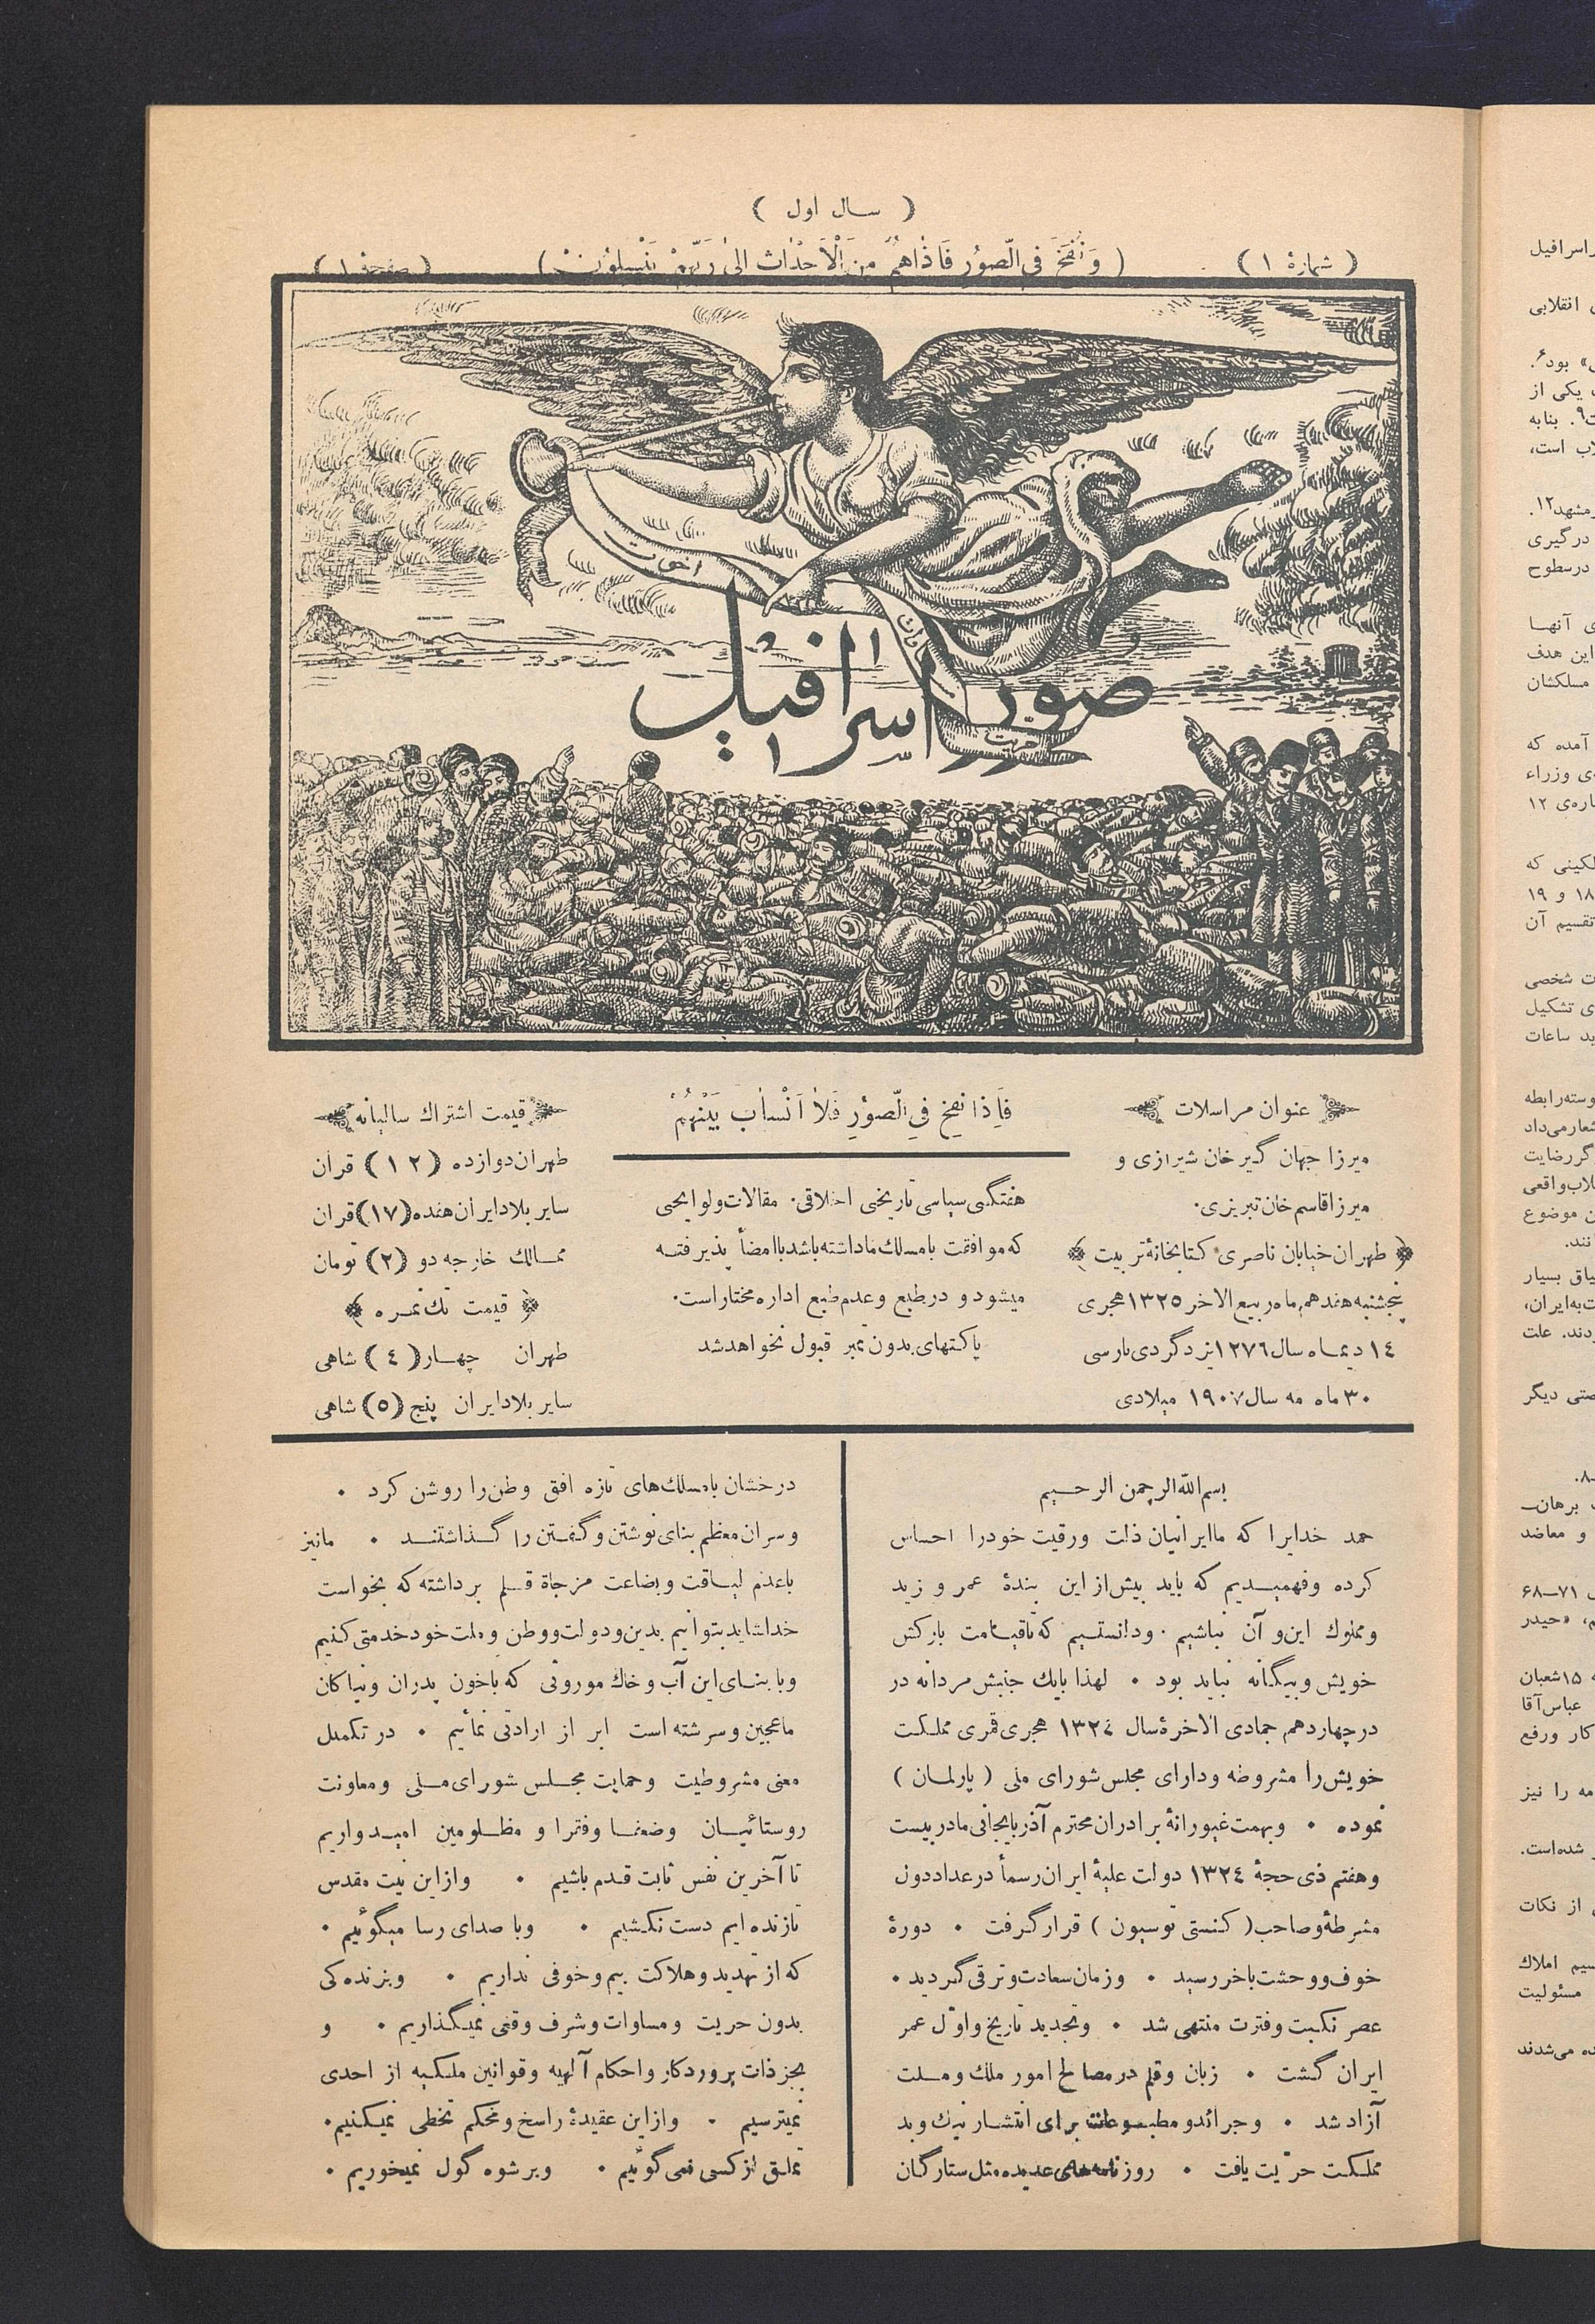 ( سال اول )
( شمارهٔ ۱ )
( وَنُفِخَ فِی الصّوُرِ فَاِذاهُمْ مِنَ الْاَجْداثِ اِلیٰ رَبِّهِمْ یَنْسِلوُنَ )
( صفحهٔ ۱ )
اخوت
مساوات
حریت
صور اسرافیل
عنوان مراسلات
میرزا جهان گیر خان شیرازی و
میرزا قاسم خان تبریزی.
طهران خیابان ناصری کتابخانهٔ تربیت
پنجشنبه هفدهم ماه ربیع الاخر ۱۳۲۵ هجری
۱٤ دیماه سال ۱۲۷٦ یزدگردی پارسی
۳۰ ماه مه سال ۱۹۰۷ میلادی
فَاِذا نُفِخَ فِی الصّوُرِ فَلاٰ اَنْسٰابَ بَیْنَهُمْ
هفتگی سیاسی تاریخی اخلاقی. مقالات و لوایحی
که موافقت با مسلك ما داشته باشد با امضأ پذیرفته
میشود و در طبع و عدم طبع اداره مختار است.
پاکتهای بدون تمبر قبول نخواهد شد
قیمت اشتراك سالیانه
طهران دوازده (۱۲) قران
سایر بلاد ایران هفده (۱۷) قران
ممالك خارجه دو (۲) تومان
قیمت تك نمره
طهران چهار (٤) شاهی
سایر بلاد ایران پنج (۵) شاهی
بسم الله الرحمن الرحیم
حمد خدایرا که ما ایرانیان ذلت و رقیت خود را احساس
کرده و فهمیدیم که باید بیش از این بندهٔ عمر و زید
و مملوك این و آن نباشیم. و دانستیم که تا قیامت بارکش
خویش و بیگانه نباید بود . لهذا بایك جنبش مردانه در
در چهاردهم جمادی الاخرهٔ سال ۱۳۲٤ هجری قمری مملکت
خویش را مشروطه و دارای مجلس شورای ملی ( پارلمان )
نموده . و بهمت غیورانهٔ برادران محترم آذربایجانی ما در بیست
و هفتم ذی حجهٔ ۱۳۲٤ دولت علیهٔ ایران رسماً در عداد دول
مشرطهٔ و صاحب ( کنستی توسیون ) قرار گرفت . دورهٔ
خوف و وحشت باخر رسید . و زمان سعادت و ترقی گردید .
عصر نکبت و فترت منتهی شد . و تجدید تاریخ و اوّل عمر
ایران گشت . زبان و قلم در مصالح امور ملك و ملت
آزاد شد . و جرائد و مطبوعات برای انتشار نیك و بد
مملکت حرّیت یافت . روزنامه‌های عدیده مثل ستارگان
درخشان با مسلك‌های تازه افق وطن را روشن کرد .
و سران معظم بنای نوشتن و گفتن را گذاشتند . ما نیز
با عدم لیاقت و بضاعت مزجاة قلم برداشته که بخواست
خدا شاید بتوانیم بدین و دولت و وطن و ملت خود خدمتی کنیم
و با بنای این آب و خاك موروثی که با خون پدران و نیاکان
ما عجین و سرشته است ابراز ارادتی نمأیم . در تکمیل
معنی مشروطیت و حمایت مجلس شورای ملی و معاونت
روستائیان و ضعفا و فقرا و مظلومین امیدواریم
تا آخرین نفس ثابت قدم باشیم . و از این نیت مقدس
تا زنده ایم دست نکشیم . و با صدای رسا میگوئیم .
که از تهدید و هلاکت بیم و خوفی نداریم . و بزندگی
بدون حریت و مساوات و شرف وقعی نمیگذاریم . و
بجز ذات پروردگار و احکام آلهیه و قوانین ملکیه از احدی
نمیترسیم . و از این عقیدهٔ راسخ و محکم تخطی نمیکنیم.
تملق از کسی نمی گوئیم . و برشوه گول نمیخوریم .